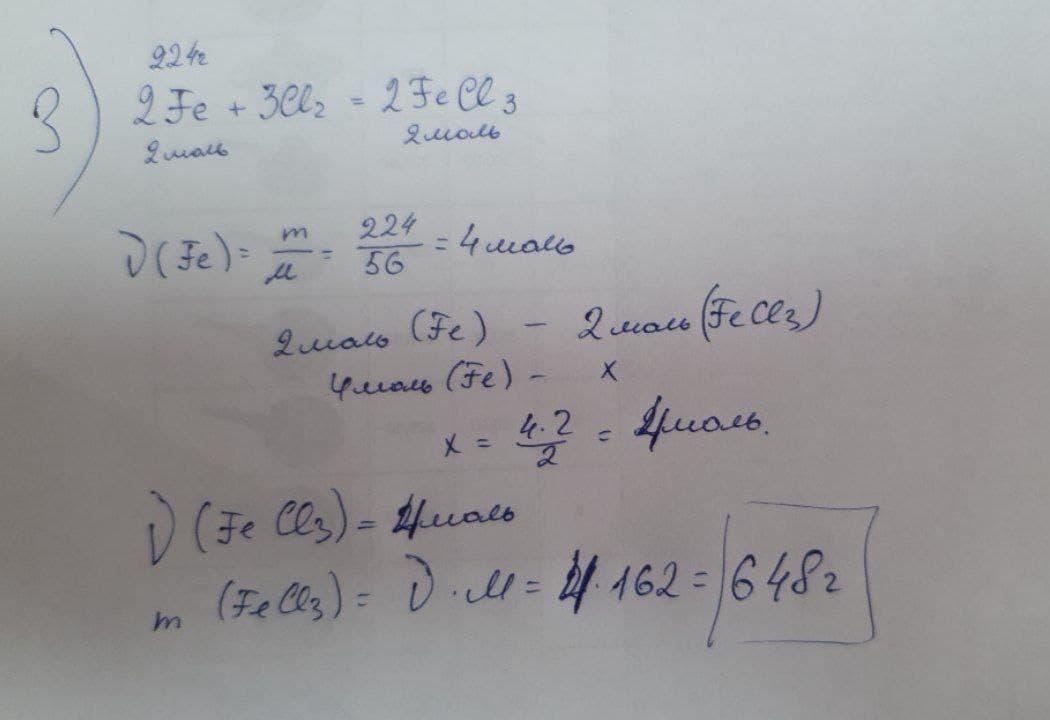 3)
224г
2Fe + 3Cl₂ = 2FeCl₃
2моль 2моль
ν(Fe) = m/M = 224/56 = 4моль
2моль (Fe) – 2моль (FeCl₃)
4моль (Fe) – x
x = 4·2/2 = 4моль.
ν(FeCl₃) = 4моль
m (FeCl₃) = ν · M = 4 · 162 = 648г